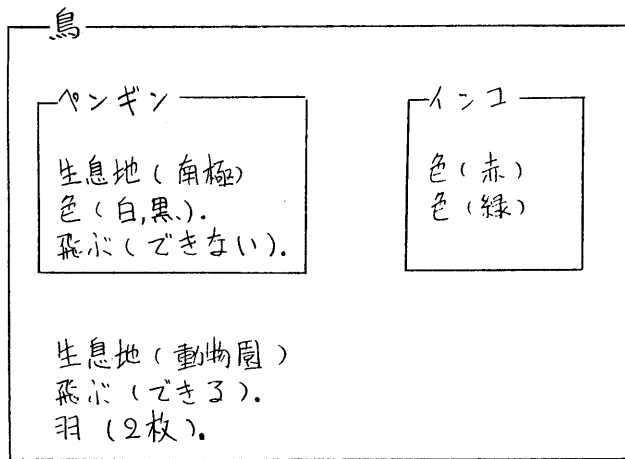 鳥
ペンギン
生息地(南極)
色(白,黒.).
飛ぶ(できない).
インコ
色(赤)
色(緑)
生息地(動物園)
飛ぶ(できる).
羽(2枚).